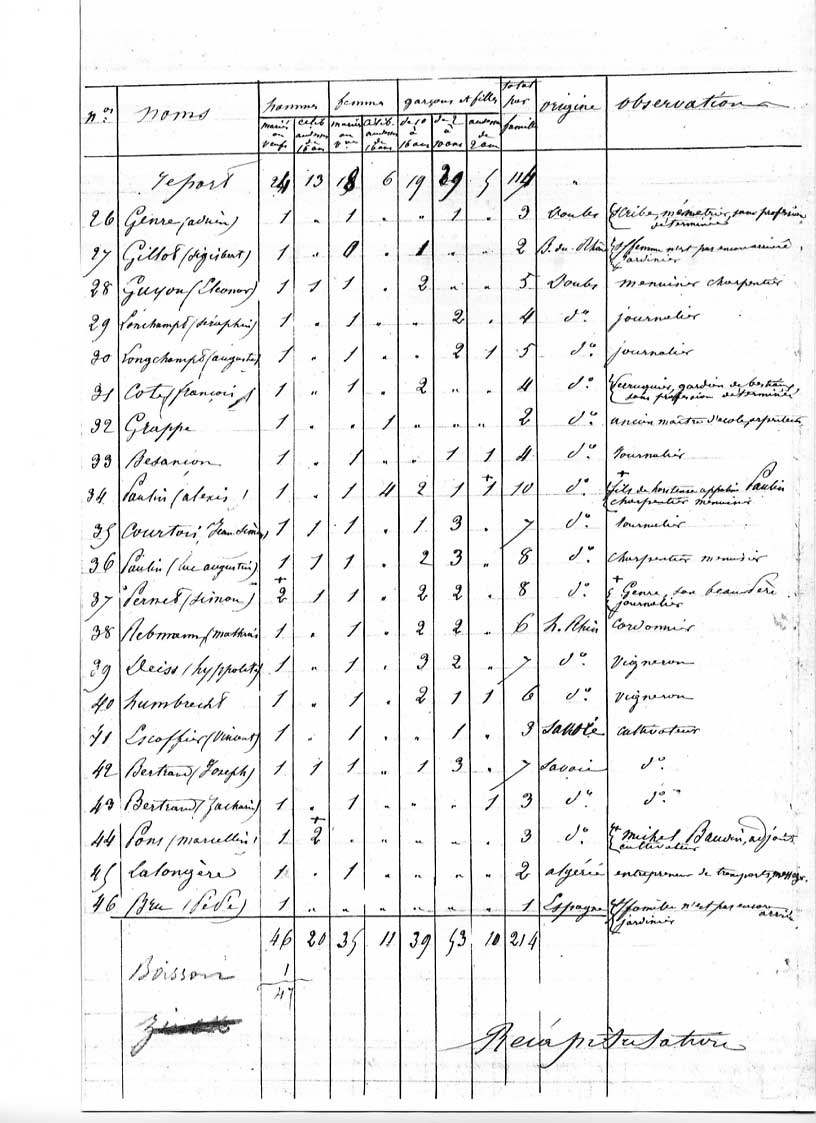 nos noms hommes femmes garçons et filles total par famille origine observation
mariés ou veufs célib. au dessus de 16 ans mariées ou vves célib. au dessus de 16 ans de 10 à 16 ans de 2 à 10 ans au dessous de 2 ans
report 24 13 18 6 19 29 5 114 "
26 Genre ( 1 " 1 " " 1 " 3 Doubs scribe, ménétrier, sans profession déterminée
27 Gillot (Sigisbert) 1 " 0 " 1 " " 2 B. du Rhône sa femme n'est pas encore arrivée, jardinier
28 Guyon (Eleonor) 1 1 1 " 2 " " 5 Doubs menuisier charpentier
29 Lonchampt (Séraphin) 1 " 1 " " 2 " 4 do. journalier
30 Longchampt (auguste) 1 " 1 " " 2 1 5 do. journalier
31 Cote (françois) 1 " 1 " 2 " " 4 do. gardien de bestiaux, sans profession déterminée
32 Grappe 1 " " 1 " " " 2 do. ancien maître d'école, arpenteur
33 Besançon 1 " 1 " " 1 1 4 do. Journalier
34 Paulin (alexis) 1 " 1 4 2 1 +1 10 do. + fils de hortense appelée Paulin charpentier menuisier
35 Courtois, Jean Simon) 1 1 1 " 1 3 " 7 do. Journalier
36 Paulin (luc augustin) 1 1 1 " 2 3 " 8 do. charpentier menuisier
37 Pernet (Simon) +2 1 1 " 2 2 " 8 do. + Genre, son beau Père journalier
38 Rebmann, (mathias 1 " 1 " 2 2 " 6 h. Rhin cordonnier
39 Deiss (hyppolite) 1 " 1 " 3 2 " 7 do. vigneron
40 humbrecht 1 " 1 " 2 1 1 6 do. vigneron
41 Escoffier (Vincent) 1 " 1 " " 1 " 3 Savoie cultivateur
42 Bertrand (Joseph) 1 1 1 " 1 3 " 7 Savoie do.
43 Bertrand (Zacharie) 1 " 1 " " " 1 3 do. do.
44 Pons (marcellin) 1 +2 " " " " " 3 do. + michel Baudin, adjoint cultivateur
45 Lalongère 1 " 1 " " " " 2 algérie entrepreneur de transports, messag.
46 Bru (Pépé) 1 " " " " " " 1 Espagne sa famille n'est pas encore arrivée jardinier
46 20 35 11 39 53 10 214
Boisson 1
47
Récapitulation